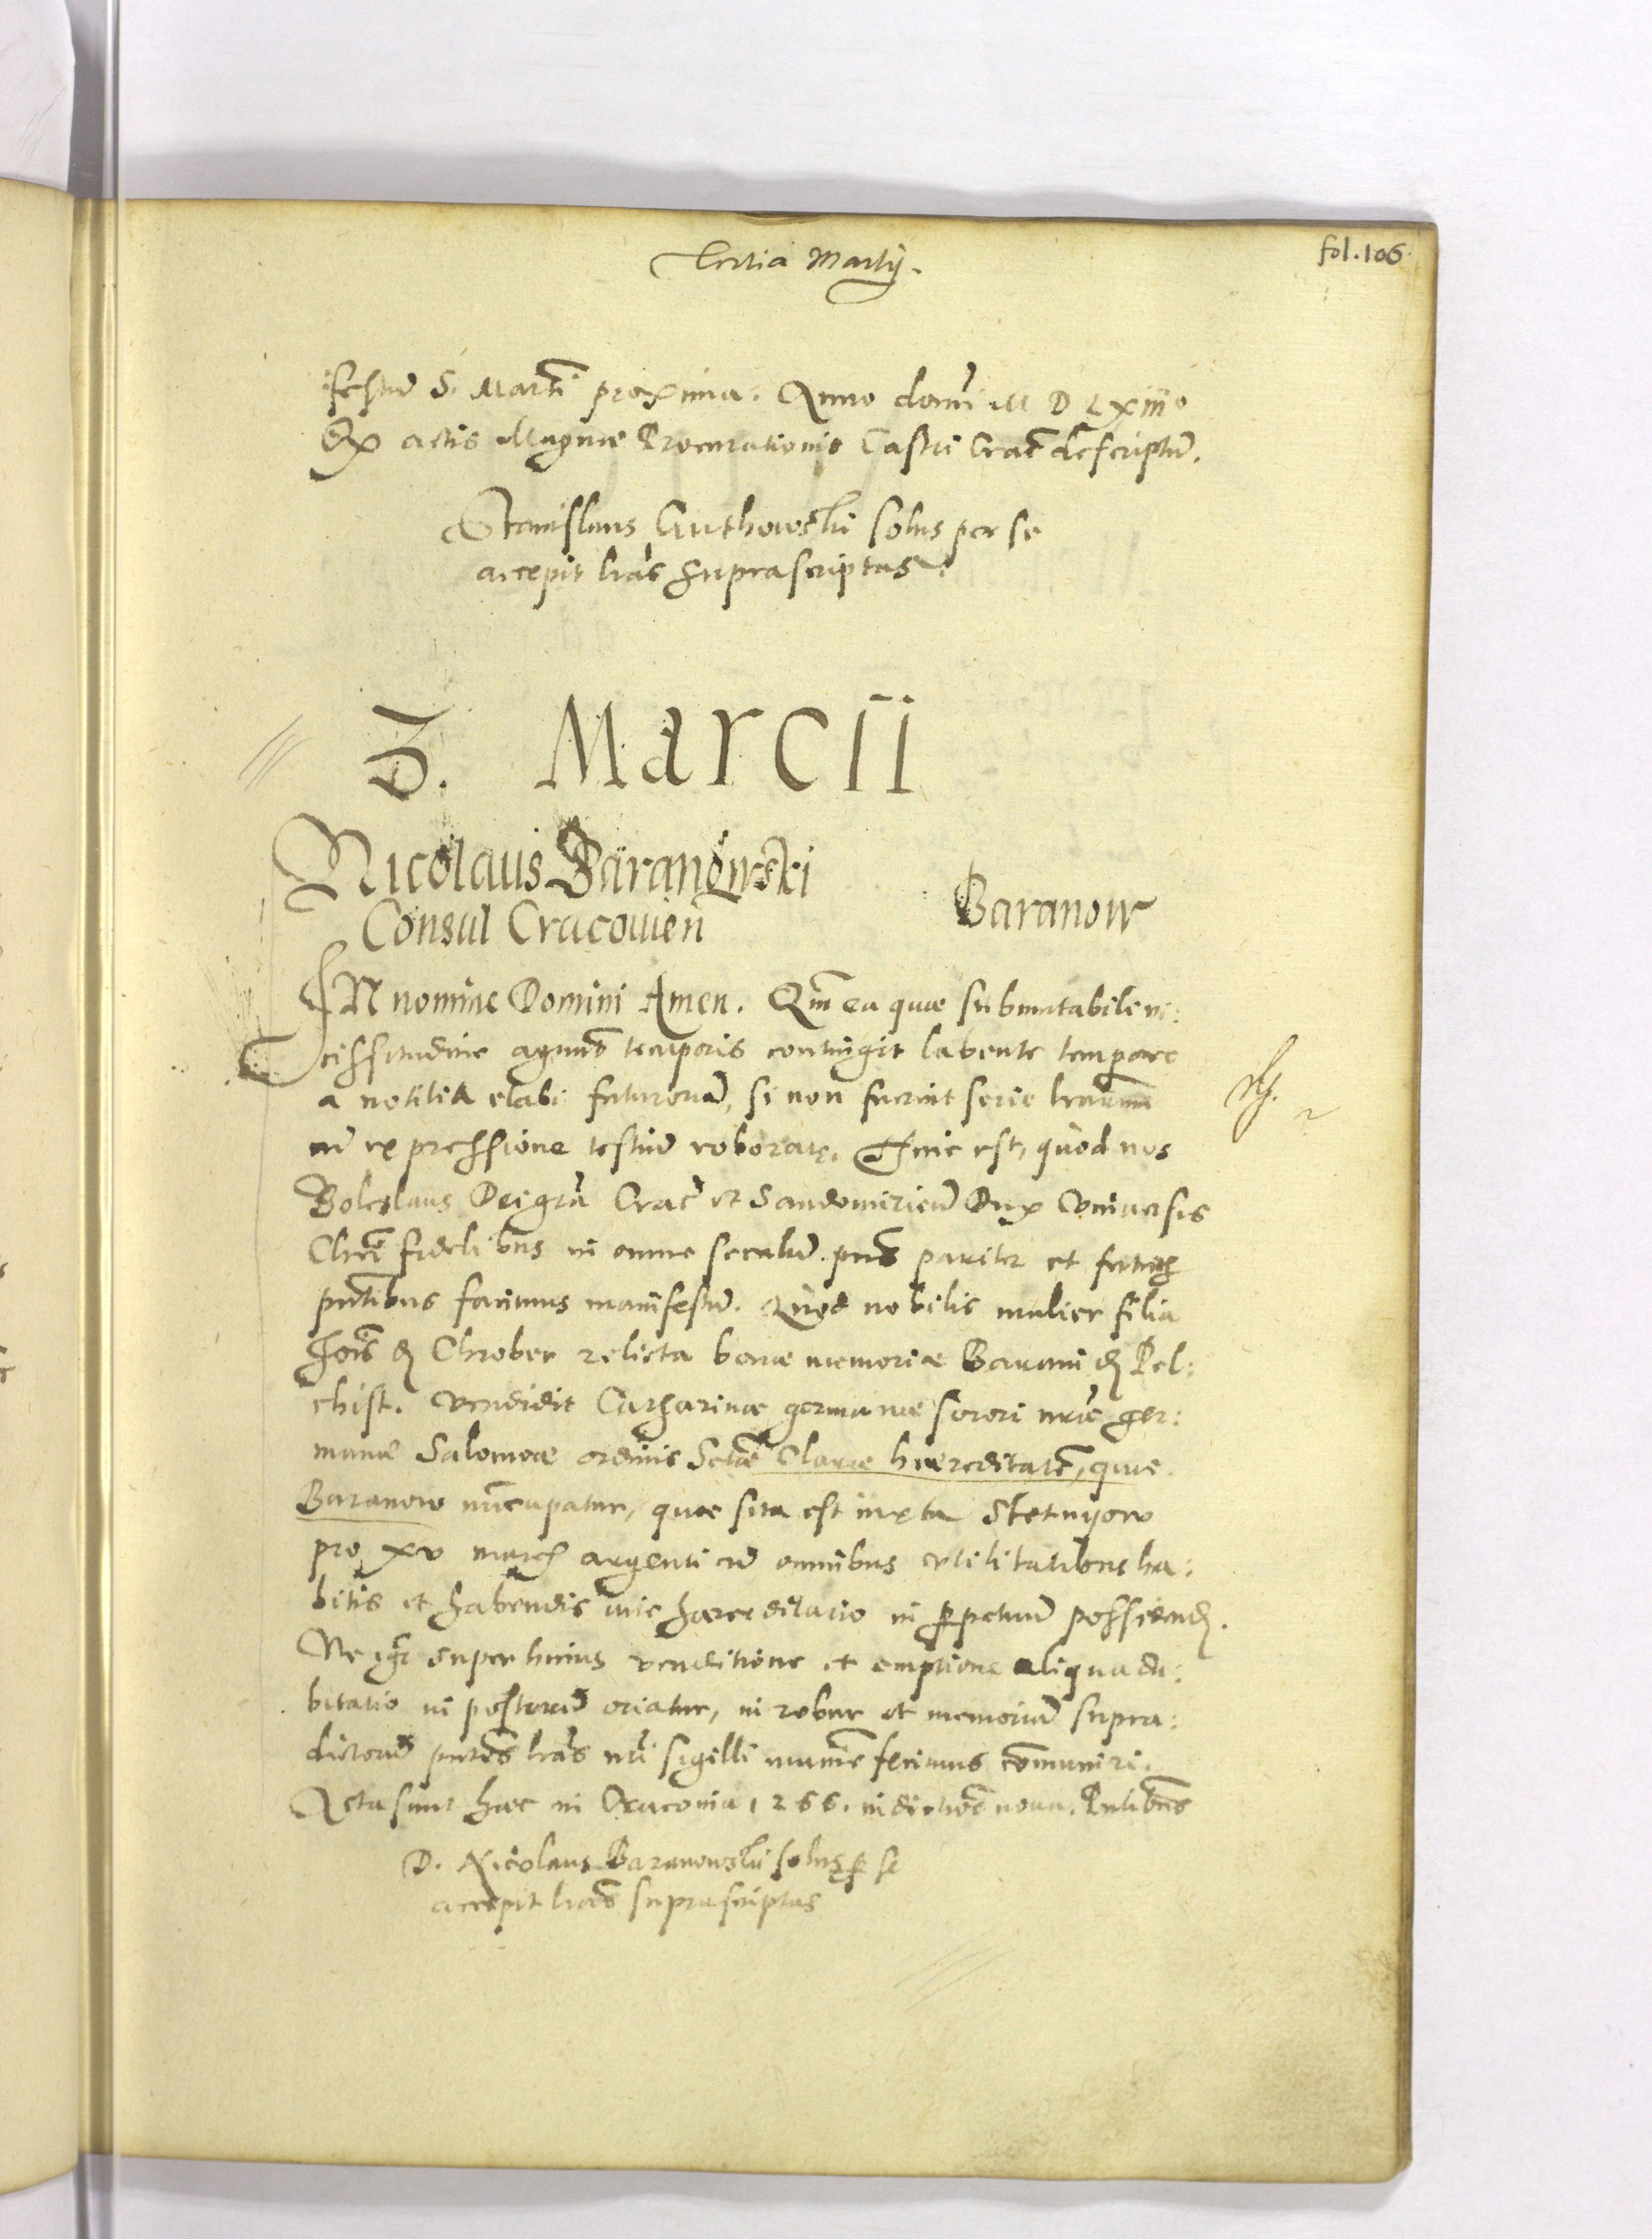 Tertia Martij.
fol. 106
festum S. Marti proxima. Anno domi M D LXIIIo
Ex actis Magnae Procurationis Castri Crac descriptum.
Stanislaus solus per se
accepit lras suprascriptas.
3. Marcii
Nicolaus Baranowski
Consul Cracouien
Baranow
IN nomine Domini Amen. Qm ea quae sub mutabile vi:
cissitudine agunt temporis contingit labente tempore
a notitia elabi futurorum, si non fuerint serie
expressione testium roborate. Hinc est, quod nos
Boleslaus Dei gra Crac et Sandomirien Dux Vniuersis
Chri fidelibus in omne seculum pns pariter et
pntibus facimus manifestum. Quod nobilis mulier filia
de Chrober relicta bonae memoriae Barani de Pel:
chist. vendidit Catharinae germanae sorori nrae ger:
manae Salomeae ordinis Sctae Clarae haereditatem, quae
Baranow nuncupatur, quae sita est iuxta Stetnyow
pro xv march argenti cum omnibus vtilitatibus ha:
bitis et habendis iure haereditario in perpetuum possidend.
Ne igr super huius venditione et emptione aliqua du:
bitatio in posterum oriatur, in robur et memoriam supra:
dictorum pntes lras nri sigilli munime fecimus comuniri.
Acta sunt haec in Cracouia 1266. indictioe nona. Pntibus
D. Nicolaus Baranowski solus per se
accepit lras suprascriptas